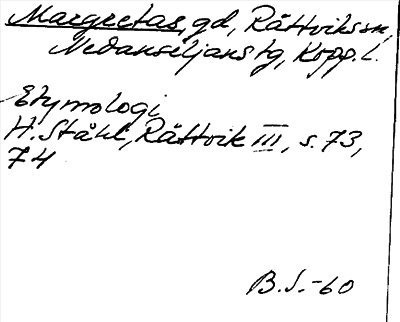 Margretas, gd, Rättviks sn,
Nedansiljans tg, Kopp. l.
Etymologi
H. Ståhl, Rättvik III, s. 73,
74
B.S.-60